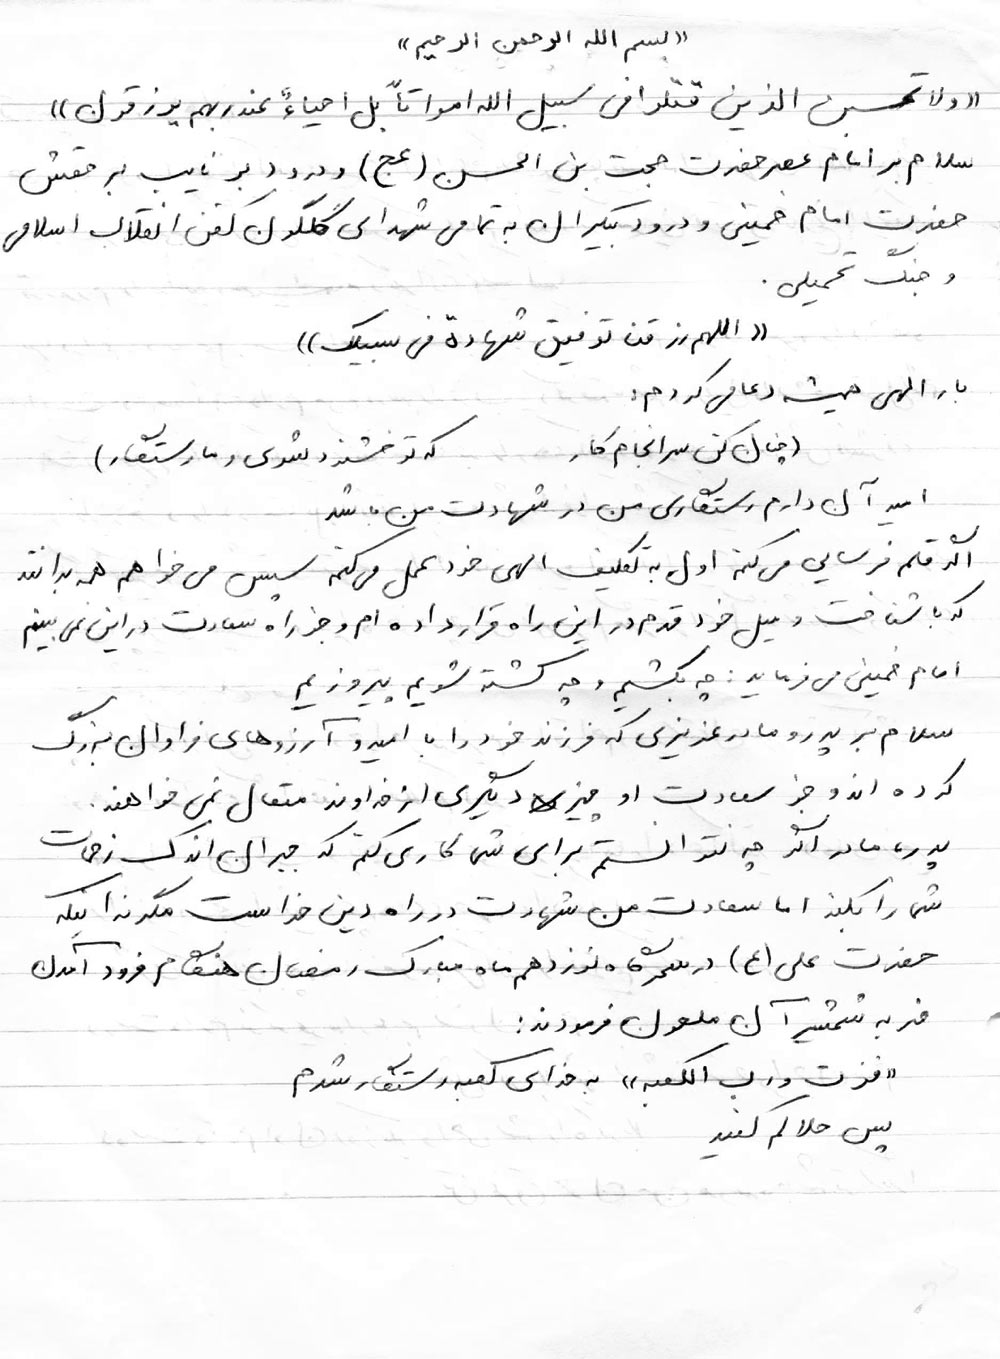 «بسم الله الرحمن الرحیم»
«ولا تحسبن الذین قتلوا فی سبیل الله امواتاً بل احیاءٌ عند ربهم یرزقون»
سلام بر امام عصر حضرت حجت بن الحسن (عج) و درود بر نایب بر حقش
حضرت امام خمینی و درود بیکران به تمامی شهدای گلگون کفن انقلاب اسلامی
و جنگ تحمیلی.
«اللهم رزقنا توفیق شهادة فی سبیلک»
بار الهی همیشه دعا می کردم:
(چنان کن سرانجام کار که تو خشنود شوی و ما رستگار)
امید آن دارم رستگاری من در شهادت من باشد
اگر قلم فرسایی می کنم اول به تکلیف الهی خود عمل می کنم سپس می خواهم همه بدانند
که با شناخت و میل خود قدم در این راه قرار داده ام و جز راه سعادت در این نمی بینم
امام خمینی می فرماید: چه بکشیم و چه کشته شویم پیروزیم
سلام بر پدر و مادر عزیزی که فرزند خود را با امید و آرزوهای فراوان بزرگ
کرده اند و جز سعادت او چیزی دیگری از خداوند متعال نمی خواهند.
پدر، مادر اگر چه نتوانستم برای شما کاری کنم که جبران اندک زحمات
شما را بکند اما سعادت من شهادت در راه دین خداست مگر نه اینکه
حضرت علی (ع) در سحرگاه نوزدهم ماه مبارک رمضان هنگام فرود آمدن
ضربه شمشیر آن ملعون فرمودند:
«فزت و رب الکعبه» به خدای کعبه رستگار شدم
پس حلالم کنید